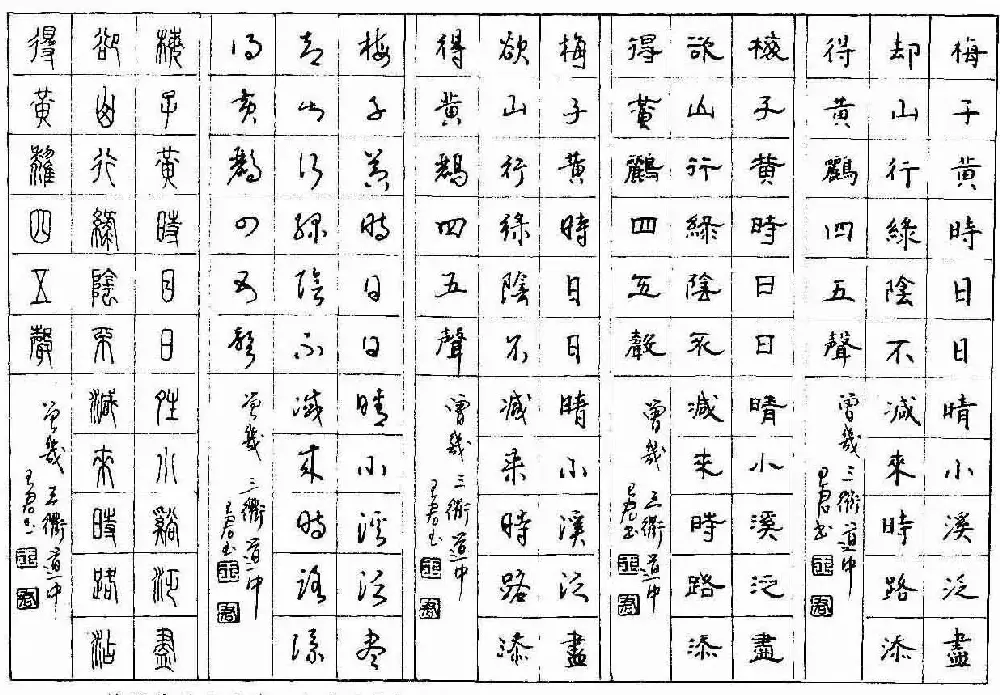 梅子黃時日日晴小溪泛盡
却山行綠陰不減來時路添
得黃鸝四五聲
曾幾 三衢道中
梅子黃時日日晴小溪泛盡
卻山行綠陰不減來時路添
得黃鸝四五聲
曾幾 三衢道中
梅子黃時日日晴小溪泛盡
卻山行綠陰不減來時路添
得黃鸝四五聲
曾幾 三衢道中
梅子黃時日日晴小溪泛盡
却山行綠陰不減來時路添
得黃鸝四五聲
曾幾 三衢道中
梅子黃時日日晴小谿泛盡
卻山行綠陰不減來時路添
得黃鸝四五聲
曾幾 三衢道中